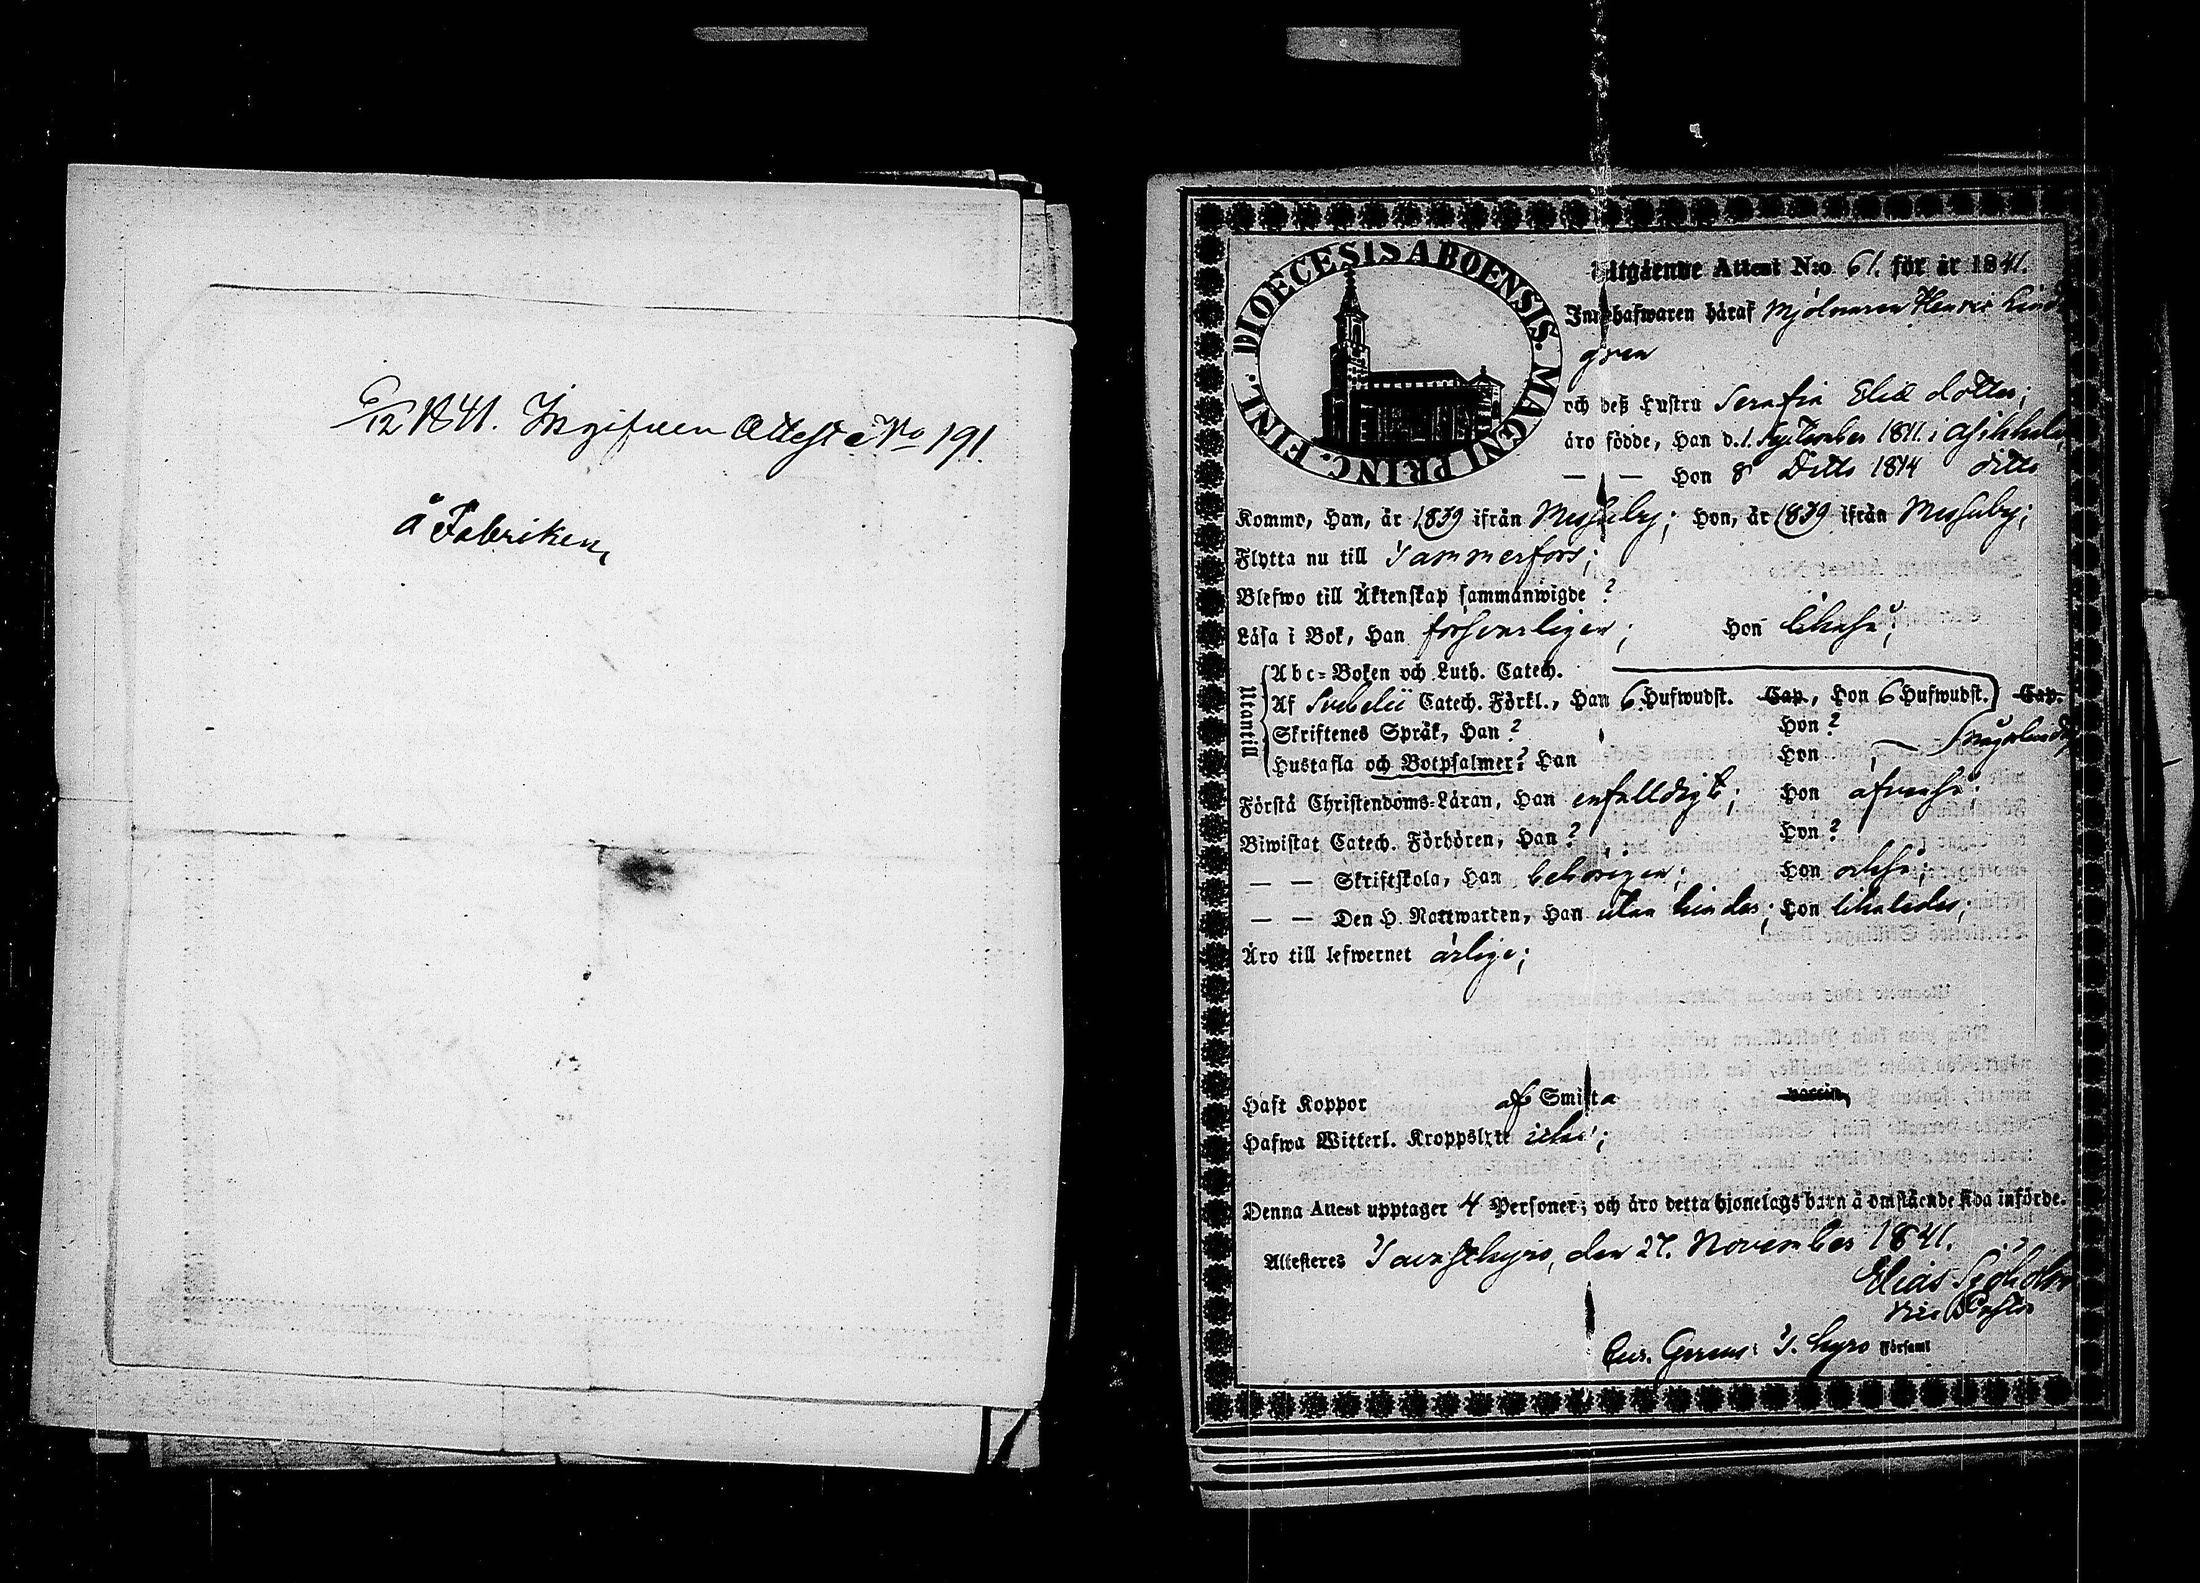 6/12 1841. Ingifven Attest No 191.
å Fabriken,
DIOECESIS ABOENSIS. MAGNI PRINC. FINL.
Utgående Attest N:o 61. för år 1841.
Innehafwaren häraf Mjölnaren Henric Lind
gren
och deß Hustru Serafia Eliæ dotter;
äro födde, Han d. 1. September 1811. i Asikkala,
— — Hon 8 Ditto 1814 ditto
Kommo, Han, år 1839 ifrån Messuby; Hon, år 1839 ifrån Messuby;
Flytta nu till Tammerfors;
Blefwo till Äktenskap sammanwigde ?
Läsa i Bok, Han försvarligen; Hon likaså;
Utantill
Abc-Boken och Luth. Catech.
Af Svebelii Catech. Förkl., Han 6 Hufwudst. Cap., Hon 6 Hufwudst. Cap.
Skriftenes Språk, Han ? Hon ?
Hustafla och Botpsalmer? Han Hon ;
Förstå Christendoms-Läran, Han enfalldigt; Hon äfvenså.
Biwistat Catech. Förhören, Han ? Hon ?
— — Skriftskola, Han behörigen; Hon också;
— — Den H. Nattwarden, Han utan hinder; Hon likaledes;
Äro till lefwernet ärlige;
Haft Koppor af Smitta
Hafwa Witterl. Kroppslyte icke;
Denna Attest upptager 4 Personer; och äro detta hjonelags barn å omstående sida införde.
Attesteres Tavastkyro, den 27. November 1841.
Elias Sjöholm
Vice Pastor
Cur. Gerens i T. kyro Församl